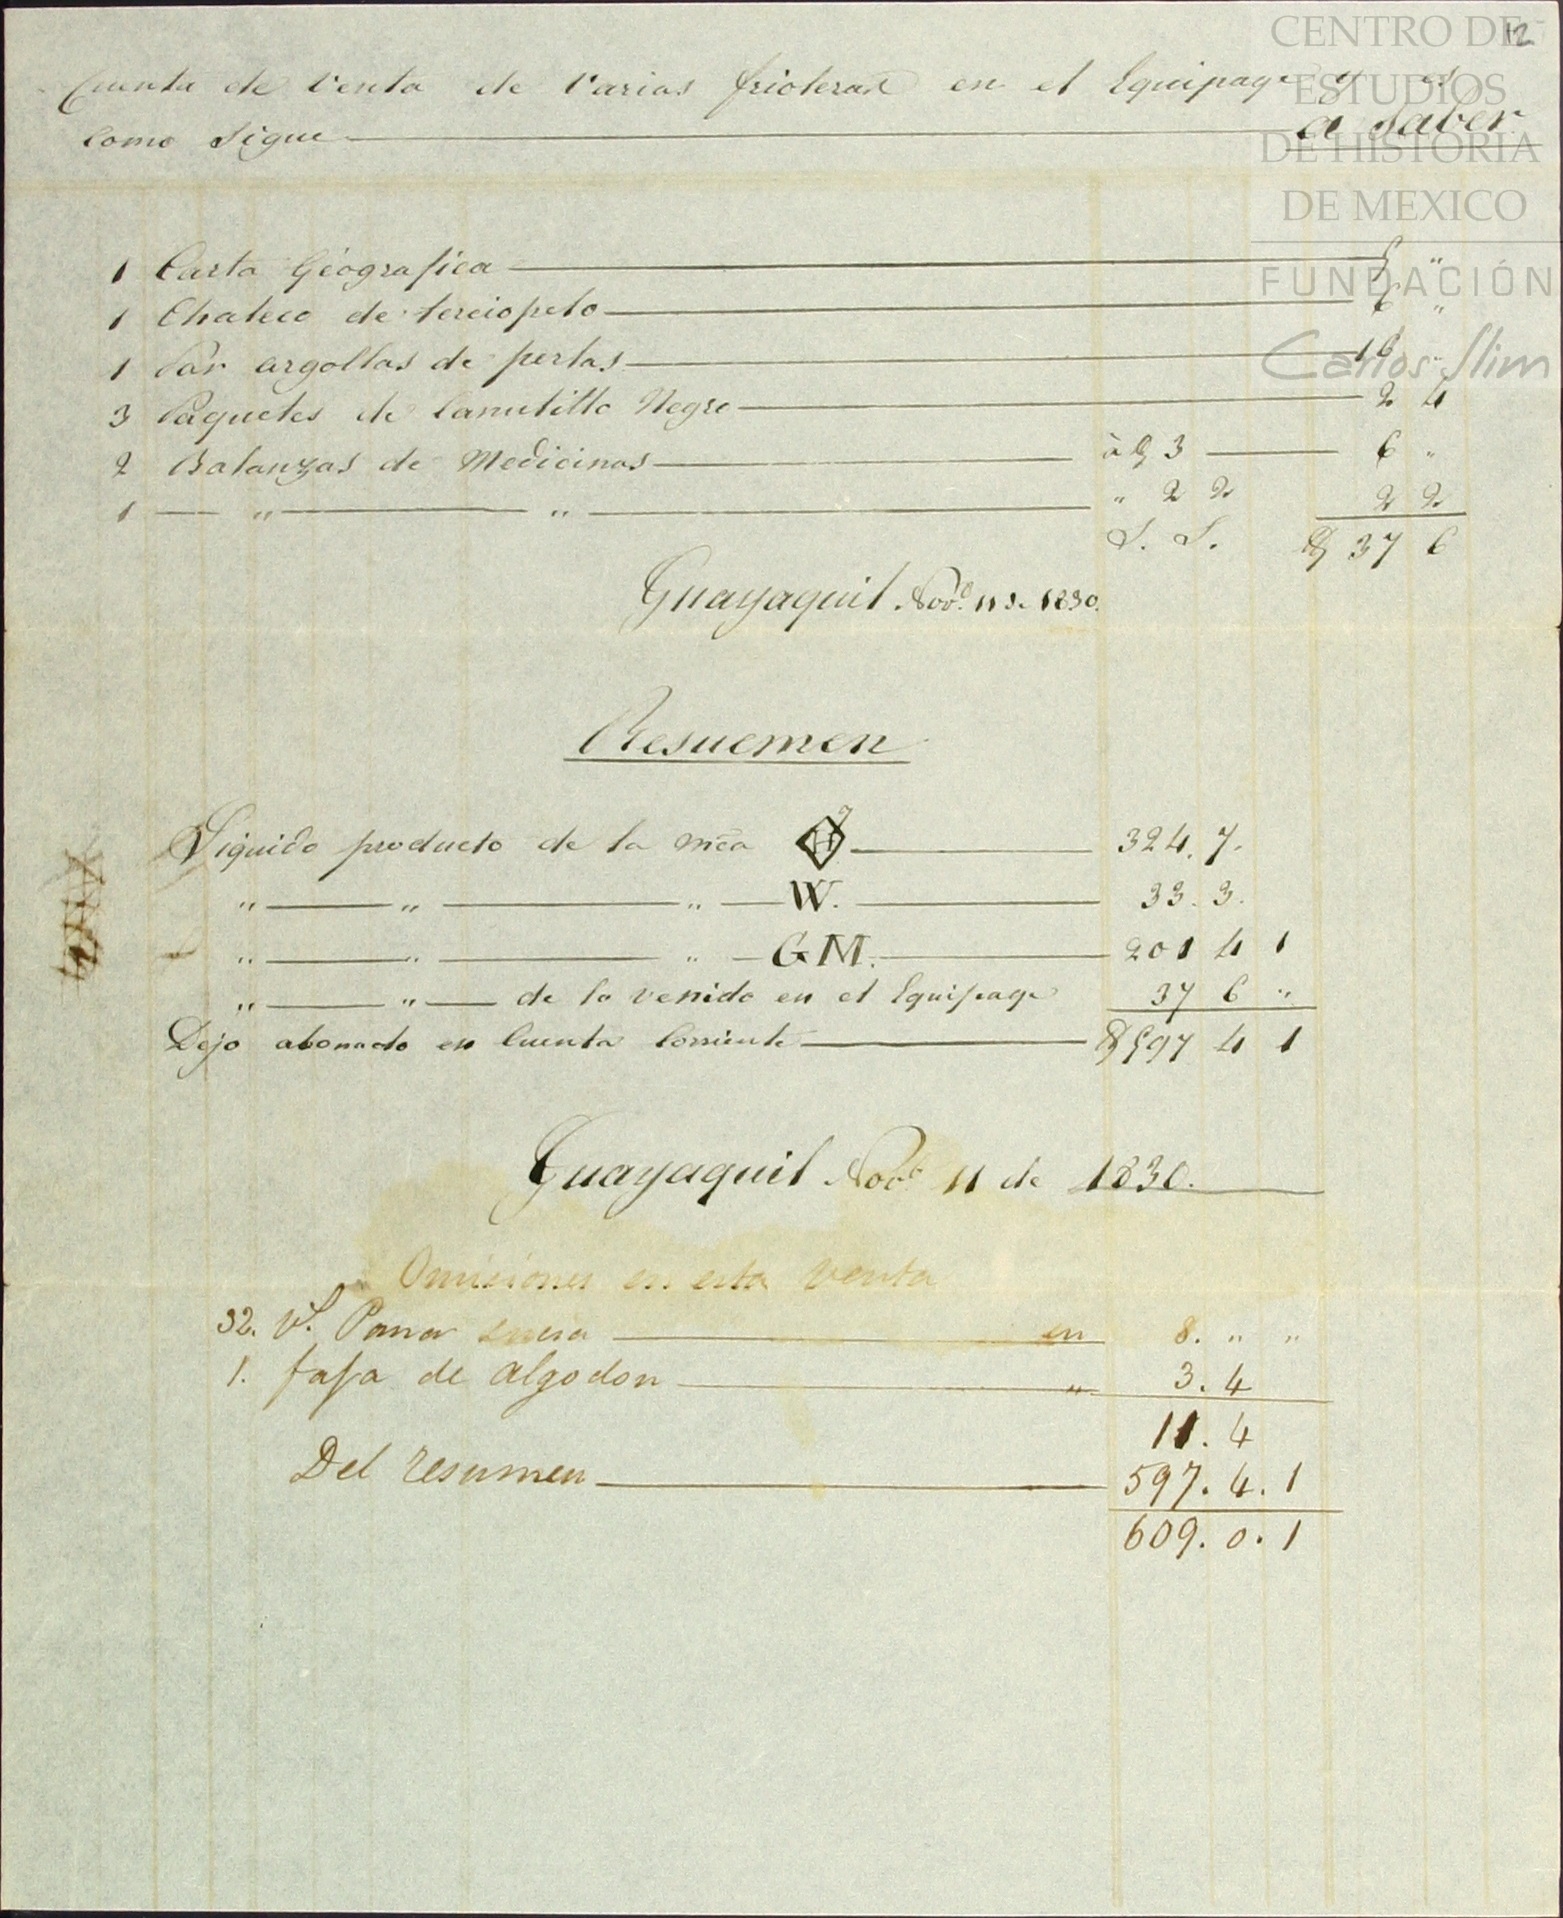 CENTRO DE
ESTUDIOS
DE HISTORIA
DE MEXICO
FUNDACIÓN
Carlos Slim
12
Cuenta de Venta de Varias frioleras en el Equipage y es
como Sigue a Saber
1 Carta Géografica 5 "
1 Chaleco de terciopelo 6 "
1 Par argollas de perlas 16 "
3 Paquetes de Canutillo Negro 2 4
2 Balanzas de Medicinas à $ 3 6 "
1 " " " 2 2 2 2
S. S. $ 37 6
Guayaquil Novᵉ 11 d. 1830.
Resuemen
Liquido producto de la mca H 324. 7.
" " " W. 33. 3.
" " " GM. 201 4 1
" " de lo venido en el Equipage 37 6 "
Dejo abonado en Cuenta Corriente $ 597 4 1
Guayaquil Novᵉ 11 de 1830.
Omisiones en esta Venta
32. Vˢ. Pana en 8. " "
1. faja de algodon " 3. 4
11. 4
Del resumen 597. 4. 1
609. 0. 1